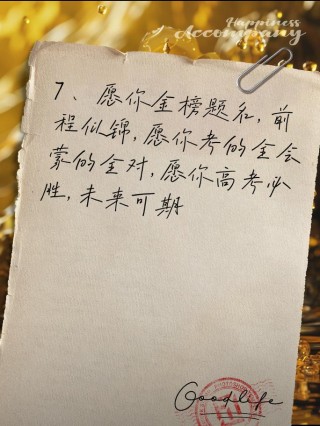 Happiness
Accompany
7、愿你金榜题名,前
程似锦,愿你考的全会
蒙的全对,愿你高考必
胜,未来可期
Good life